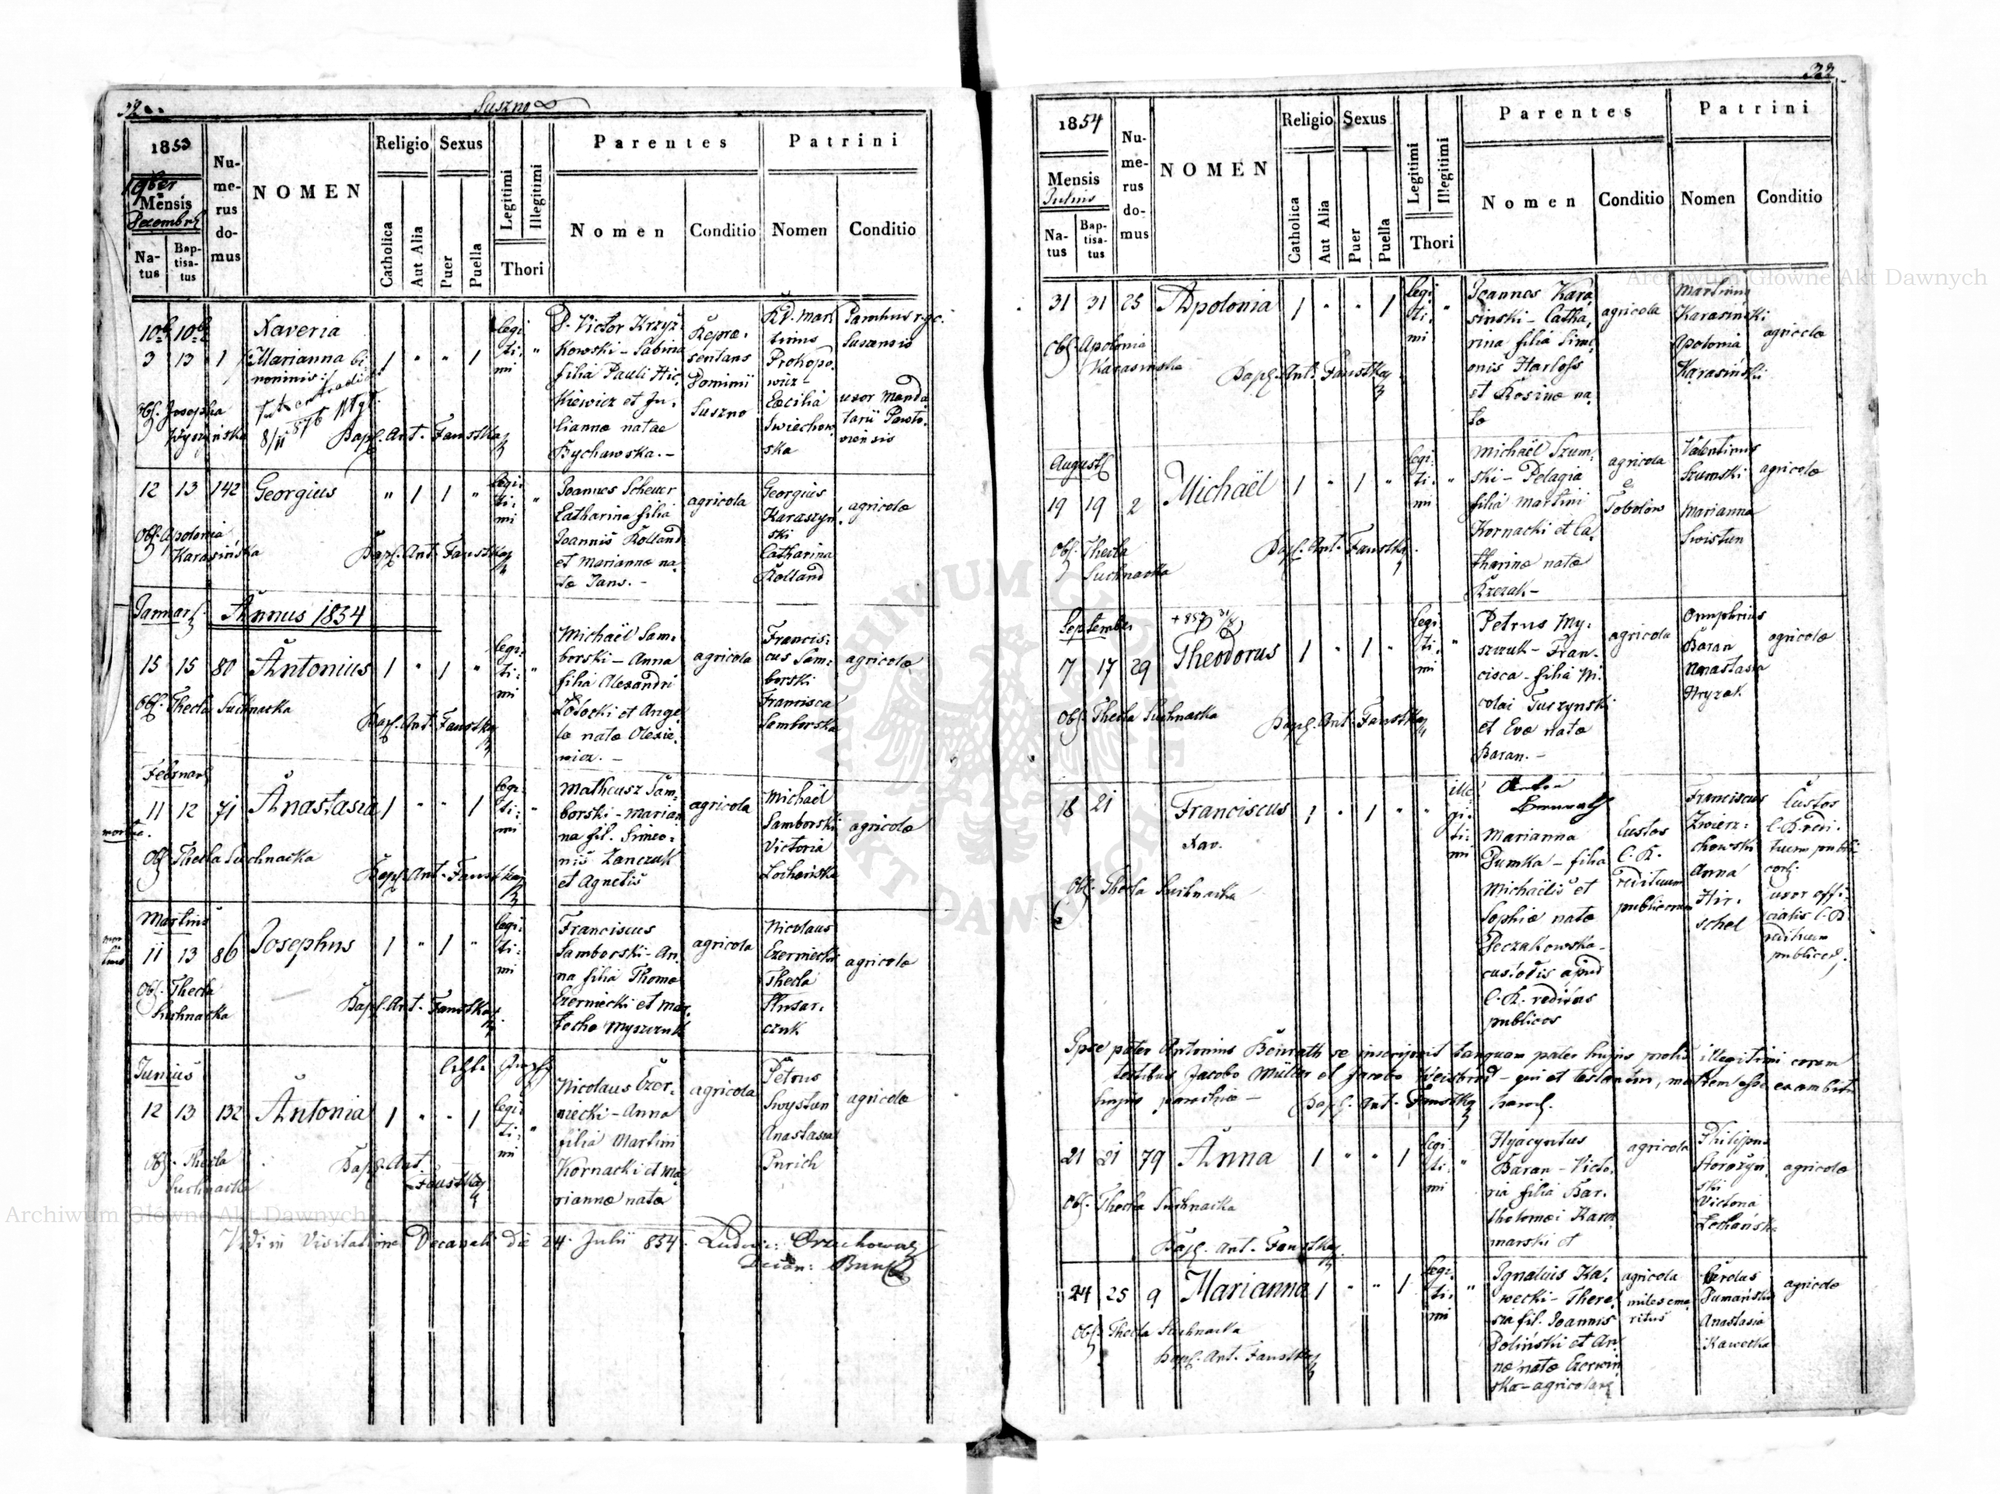 32
Suszno
1853
9ber
Mensis
Decembris
Na-
tus
Bap-
tisa-
tus
Nu-
me-
rus
do-
mus
NOMEN
Religio
Catholica
Aut Alia
Sexus
Puer
Puella
Legitimi
Illegitimi
Thori
Parentes
Nomen
Conditio
Patrini
Nomen
Conditio
3 13 1
Xaveria
Marianna bi
nominis
1 " " 1
legi
ti-
mi
"
Victor Krzyż
kowski - Sabina
filia Pauli Hic
kiewicz et Ju-
lianna natae
Bychawska. -
Repræ-
sentans
Dominii
Suszno
Mar
tinus
Prokopo
wicz
Cæcilia
Swiechow
ska
uxor manda
tarii
Obs. Josepha
Bapt. Ant. Faustka
12 13 142 Georgius " 1 1 "
legi
ti-
mi
"
Joannes Scheuer
Catharina filia
Joannis Rolland
et Mariannæ na-
tæ Jans. -
agricola
Georgius
Karaszyń
ski
Catharina
Rolland
agricolæ
Obs. Apolonia
Karasińska
Bapt. Ant. Faustka
Januar
Annus 1854
15 15 80 Antonius 1 " 1 "
legi
ti-
mi
"
Michaël Sam-
borski - Anna
filia Alexandri
Zolocki et Ange
læ natæ Olexie-
wicz. -
agricola
Francis-
cus Sam-
borski
Francisca
Samborska
agricolæ
Obs. Thecla Suchnacka
Bapt. Ant. Faustka
Februar
11 12 71 Anastasia 1 " " 1
legi-
ti-
mi
"
Matheusz Sam-
borski - Marian
na fil. Simeo-
nis Zanczuk
et Agnetis
agricola
Michaël
Samborski
Victoria
Lochańska
agricolæ
mortua.
Obs. Thecla Suchnacka
Bapt. Ant. Faustka
Martius
11 13 86 Josephus 1 " 1 "
legi-
ti-
mi
Franciscus
Samborski - An-
na filia Thomæ
Czernecki et Ma-
Myszczuk
agricola
Nicolaus
Czernecki
Thecla
Slusar-
czuk
agricolæ
mor
tuus
Obs. Thecla
Suchnacka
Bapt. Ant. Faustka
Junius
12 13 132 Antonia 1 " " 1
legi
ti-
mi
"
Nicolaus Czer-
necki - Anna
filia Martini
Kornacki et Ma
riannæ natæ
agricola
Petrus
Swystun
Anastasia
Purich
agricolæ
Obs. Thecla
Suchnacka
Bapt. Ant.
Faustka
Vidi in Visitatione Decanali die 24 Julii 854.
33
1854
Mensis
Julius
Na-
tus
Bap-
tisa-
tus
Nu-
me-
rus
do-
mus
NOMEN
Religio
Catholica
Aut Alia
Sexus
Puer
Puella
Legitimi
Illegitimi
Thori
Parentes
Nomen
Conditio
Patrini
Nomen
Conditio
31 31 25 Apolonia 1 " " 1
legi
ti-
mi
"
Joannes Kara
sinski - Catha-
rina filia Sim
onis Harloss
et Rosinæ na-
tæ
agricola
Martinus
Karasinski
Apolonia
Karasinski
agricolæ
Obs. Apolonia
Karasinska
Bapt. Ant. Faustka
August
19 19 2 Michaël 1 " 1 "
legi
ti-
mi
"
Michaël Szum-
ski - Pelagia
filia Martini
Kornacki et Ca
tharinæ natæ
Krzczak -
agricola
e
Tobolów
Valentinus
Szumski
Marianna
Swistun
agricolæ
Obs. Thecla
Suchnacka
Bapt. Ant. Faustka
September
7 17 29 Theodorus 1 " 1 "
legi
ti-
mi
"
Petrus My-
szczuk - Fran-
cisca filia Ni-
colai Tuszynski
et Evæ natæ
Baran. -
agricola
Onuphrius
Baran
Anastasia
Hryzak
agricolæ
Obs. Thecla Suchnacka
Bapt. Ant. Faustka
18 21 Franciscus 1 " 1 " "
Xav.
ille
gi-
ti-
mi
Marianna
Dumka - filia
Michaëlis et
Sophiæ natæ
Peczakowska -
custodis apud
C. R. reditus
publicos
Custos
C. R.
redituum
publicorum
Franciscus
Zwierz-
chowski
Anna
Hir-
schel
Custos
C. R. redi-
tuum publi
cor.
uxor offi-
cialis C. R.
redituum
publicor.
Obs. Thecla Suchnacka
Ipse pater Antonius Benrath se inscripsit tanquam pater hujus prolis illegitimi coram
testibus Jacobo Müller et Jacobo Weisbrod - qui et testantur, matrem esse ex ambitu
hujus parochiæ - Bapt. Ant. Faustka
21 21 79 Anna 1 " " 1
legi
ti-
mi
"
Hyacyntus
Baran - Victo-
ria filia Bar-
tholomei Kacz
marski et
agricola
Philippus
Storożyń
ski
Victoria
Lochańska
agricolæ
Obs. Thecla Suchnacka
Bapt. Ant. Faustka
24 25 9 Marianna 1 " " 1
legi-
ti-
mi
"
Ignatius Ka-
wecki - There-
sia fil. Joannis
Poliński et An-
næ natæ Czerwin
ska - agricolarum
agricola
miles eme-
ritus
Carolus
Dumański
Anastasia
Kawecka
agricolæ
Obs. Thecla Suchnacka
Bapt. Ant. Faustka
Archiwum Główne Akt Dawnych
Archiwum Główne Akt Dawnych
ARCHIWUM GŁÓWNE AKT DAWNYCH